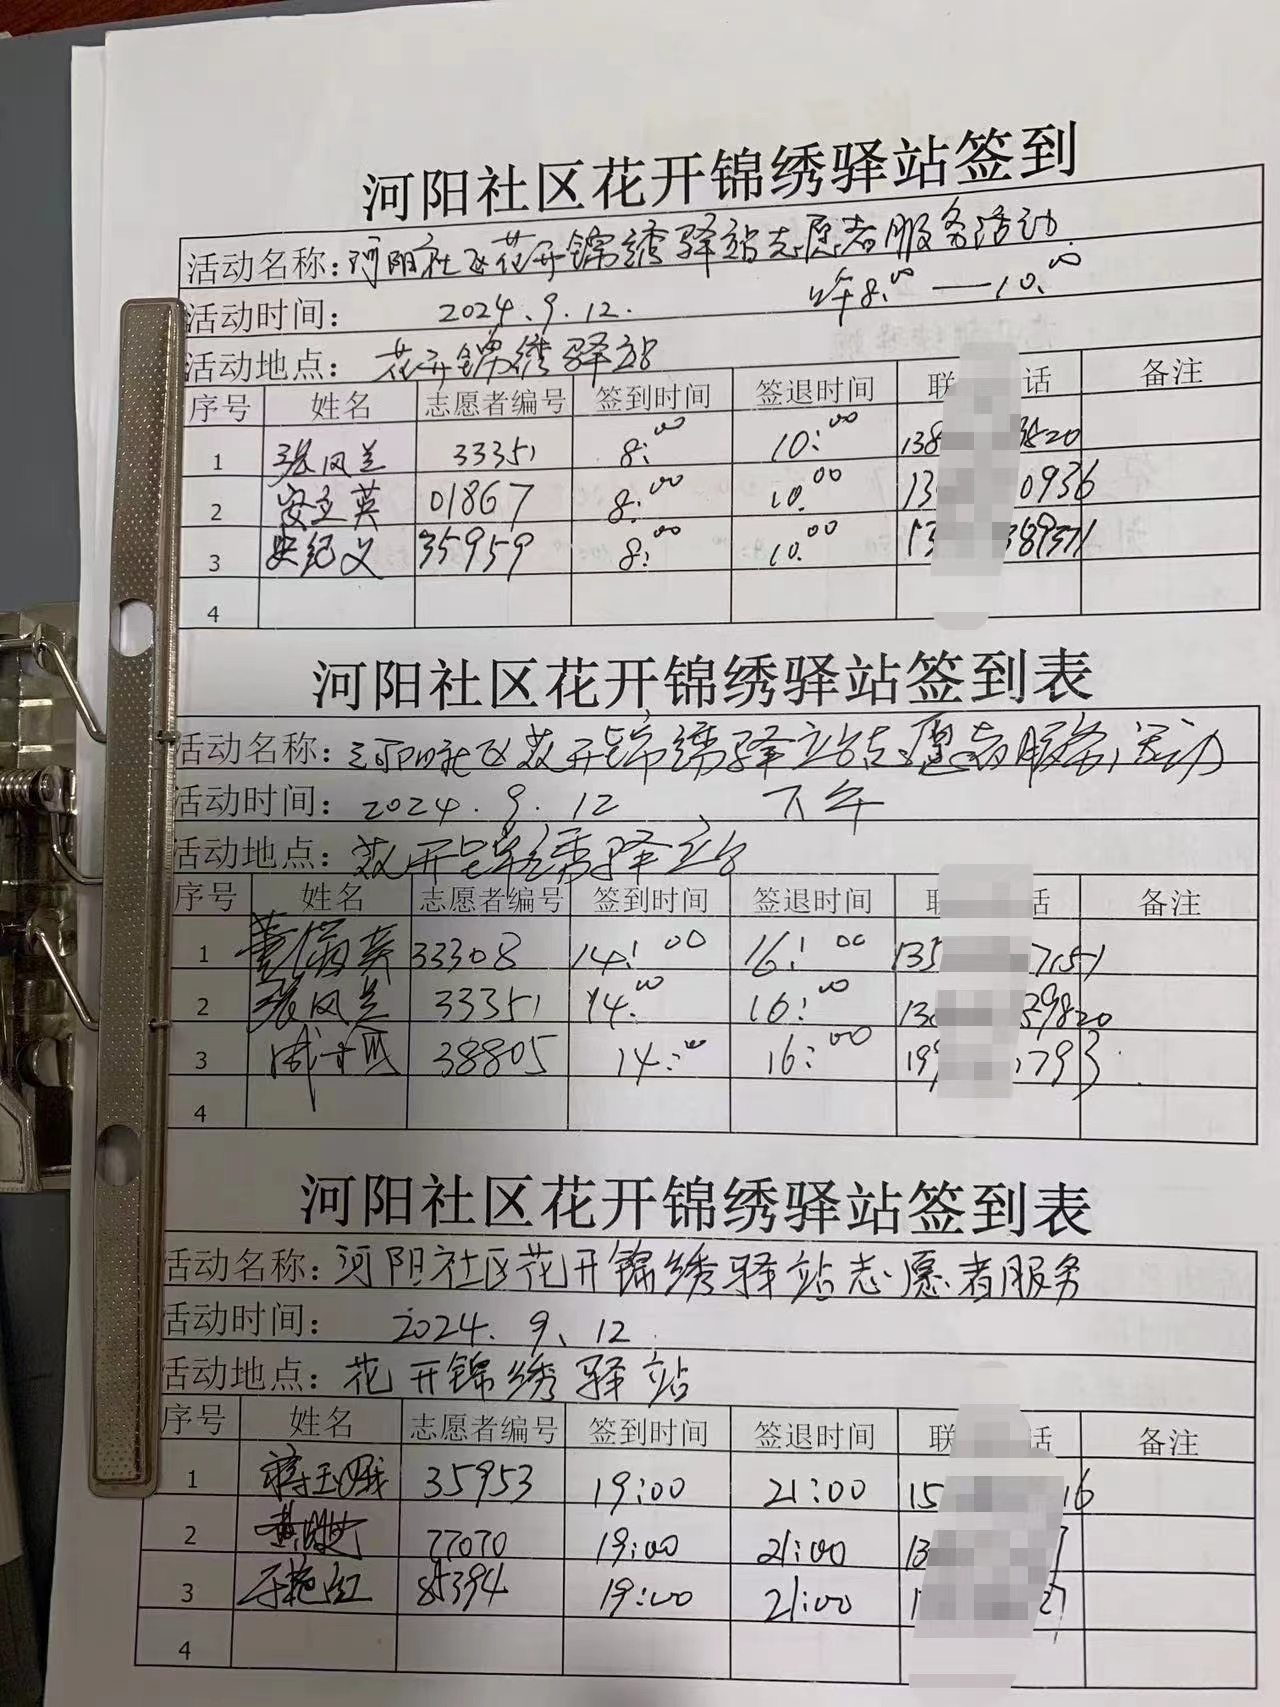 河阳社区花开锦绣驿站签到
活动名称：河阳社区花开锦绣驿站志愿者服务活动
活动时间： 2024.9.12. 上午8:00—10:00
活动地点： 花开锦绣驿站
序号 姓名 志愿者编号 签到时间 签退时间 联 话 备注
1 张凤兰 33351 8:00 10:00 138 820
2 安立英 01867 8:00 10:00 13 0936
3 安纪义 35959 8:00 10:00 13
4
河阳社区花开锦绣驿站签到表
活动名称：河阳社区花开锦绣驿站志愿者服务活动
活动时间： 2024.9.12 下午
活动地点： 花开锦绣驿站
序号 姓名 志愿者编号 签到时间 签退时间 联 话 备注
1 33308 14:00 16:00 135 7151
2 张凤兰 33351 14:00 16:00 13 39820
3 38805 14:00 16:00 19 793
4
河阳社区花开锦绣驿站签到表
活动名称：河阳社区花开锦绣驿站志愿者服务
活动时间： 2024.9.12
活动地点：花开锦绣驿站
序号 姓名 志愿者编号 签到时间 签退时间 联 话 备注
1 蒋玉娥 35953 19:00 21:00 15 16
2 77070 19:00 21:00 13
3 于艳红 85394 19:00 21:00 1 27
4